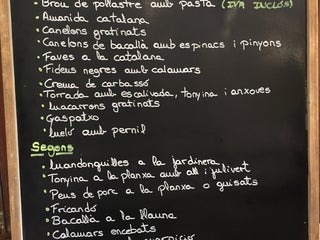 • Brou de pollastre amb pasta (IVA INCLÒS)
• Amanida catalana
• Canelons gratinats
• Canelons de bacallà amb espinacs i pinyons
• Faves a la catalana
• Fideus negres amb calamars
• Crema de carbassó
• Torrada amb escalivada, tonyina i anxoves
• Macarrons gratinats
• Gaspatxo
• Meló amb pernil
Segons
• Mandonguilles a la jardinera
• Tonyina a la planxa amb all i julivert
• Peus de porc a la planxa o guisats
• Fricandó
• Bacallà a la llauna
• Calamars encebats